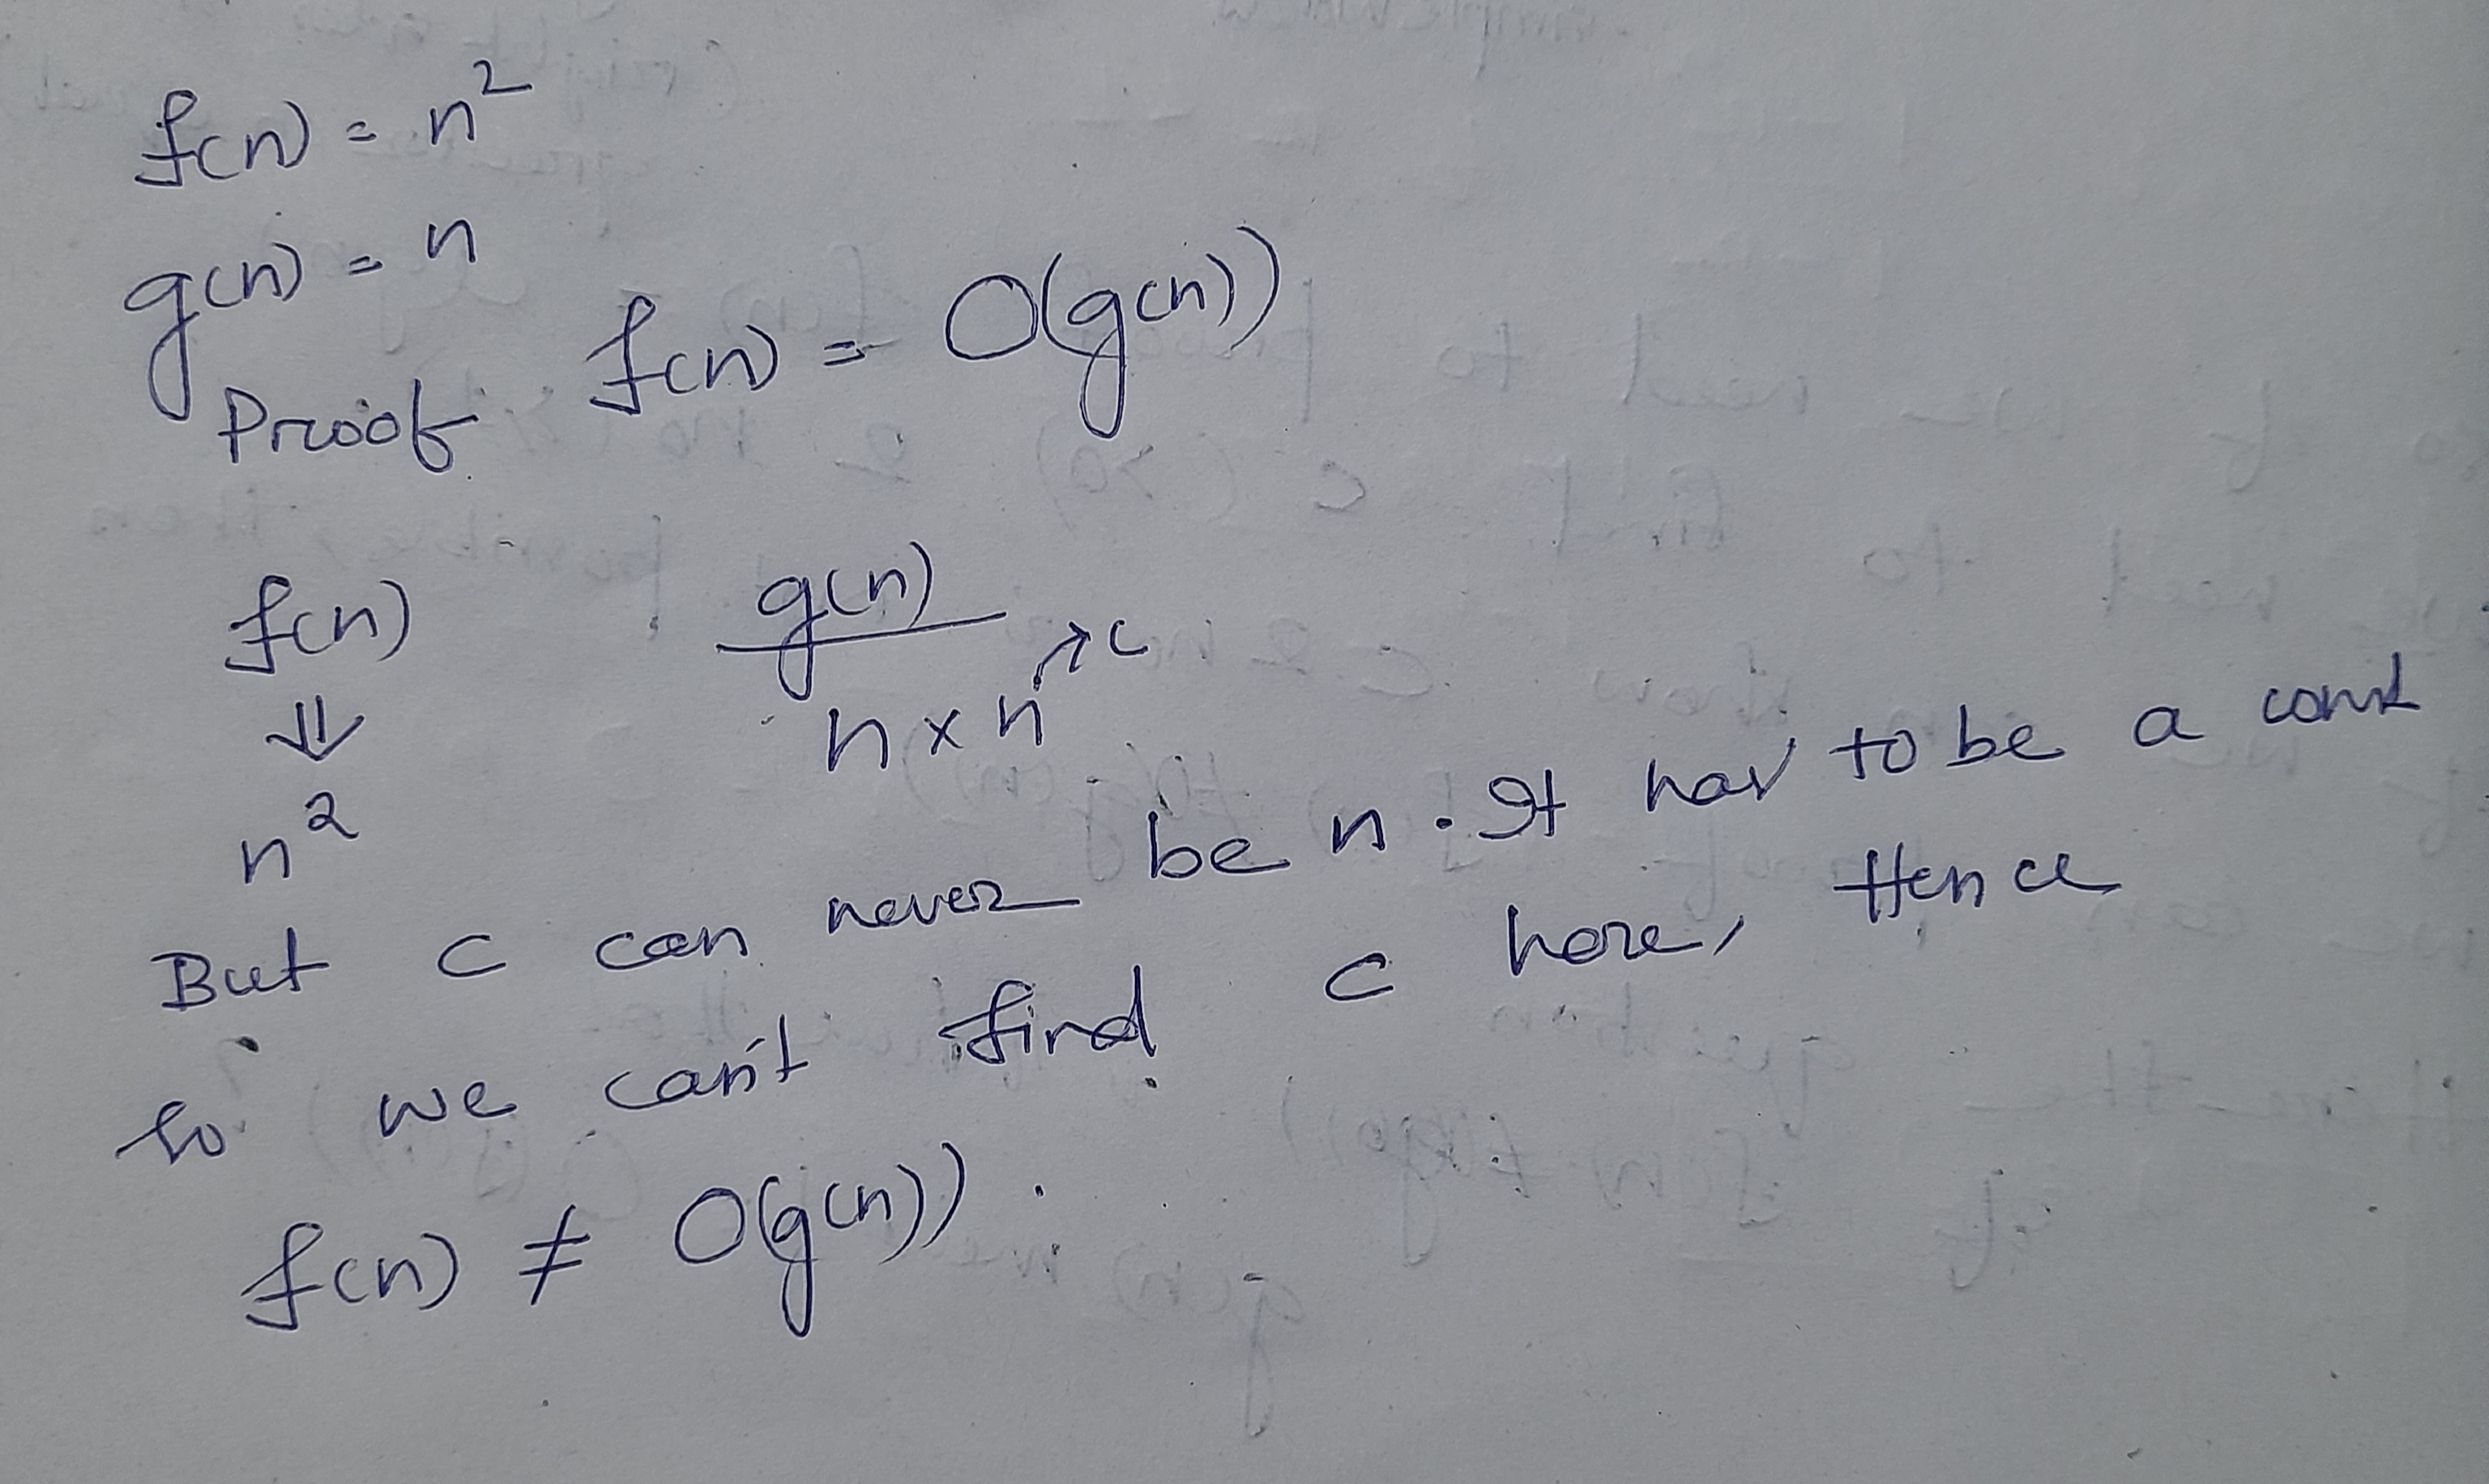 f(n) = n²
g(n) = n
Proof f(n) = O(g(n))
f(n) g(n)
⇓ n × n ↗ c
n²
But c can never be n. It has to be a const
so we can't find c here, Hence
f(n) ≠ O(g(n)).